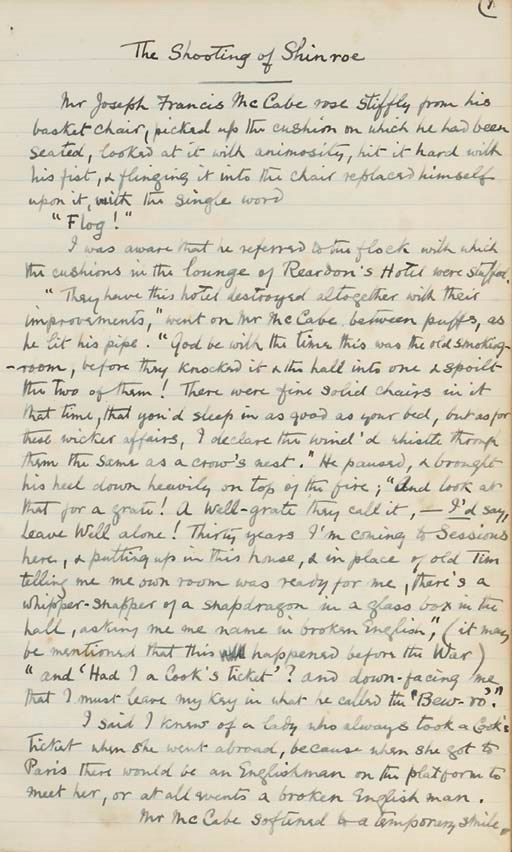 (1
The Shooting of Shinroe
Mr Joseph Francis McCabe rose stiffly from his
basket chair, picked up the cushion on which he had been
seated, looked at it with animosity, hit it hard with
his fist, & flinging it into the chair replaced himself
upon it, with the single word
"Flog!"
I was aware that he referred to the flock with which
the cushions in the lounge of Reardon's Hotel were stuffed.
"They have this hotel destroyed altogether with their
improvements," went on Mr McCabe between puffs, as
he lit his pipe. "God be with the time this was the old smoking-
-room, before they knocked it & the hall into one & spoilt
the two of them! There were fine solid chairs in it
that time, that you'd sleep in as good as your bed, but as for
these wicker affairs, I declare the wind'd whistle through
them the same as a crow's nest." He paused, & brought
his heel down heavily on top of the fire; "And look at
that for a grate! A Well-grate they call it, — I'd say,
Leave Well alone! Thirty years I'm coming to Sessions
here, & putting up in this house, & in place of old Tim
telling me me own room was ready for me, there's a
whipper-snapper of a snapdragon in a glass box in the
hall, asking me me name in broken English," (it may
be mentioned that this happened before the War)
"and 'Had I a Cook's ticket'? and down-facing me
that I must leave my key in what he called the 'Bew-ro'."
I said I knew of a lady who always took a Cook's
ticket when she went abroad, because when she got to
Paris there would be an Englishman on the platform to
meet her, or at all events a broken Englishman.
Mr McCabe softened to a temporary smile.